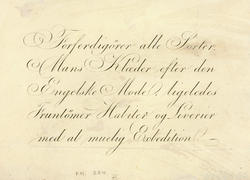 Forferdigörer alle Sorter
Mans Klæder efter den
Engelske Mode, ligeledes
Fruntömer Habiter og Leverier
med al muelig Exbedition. —